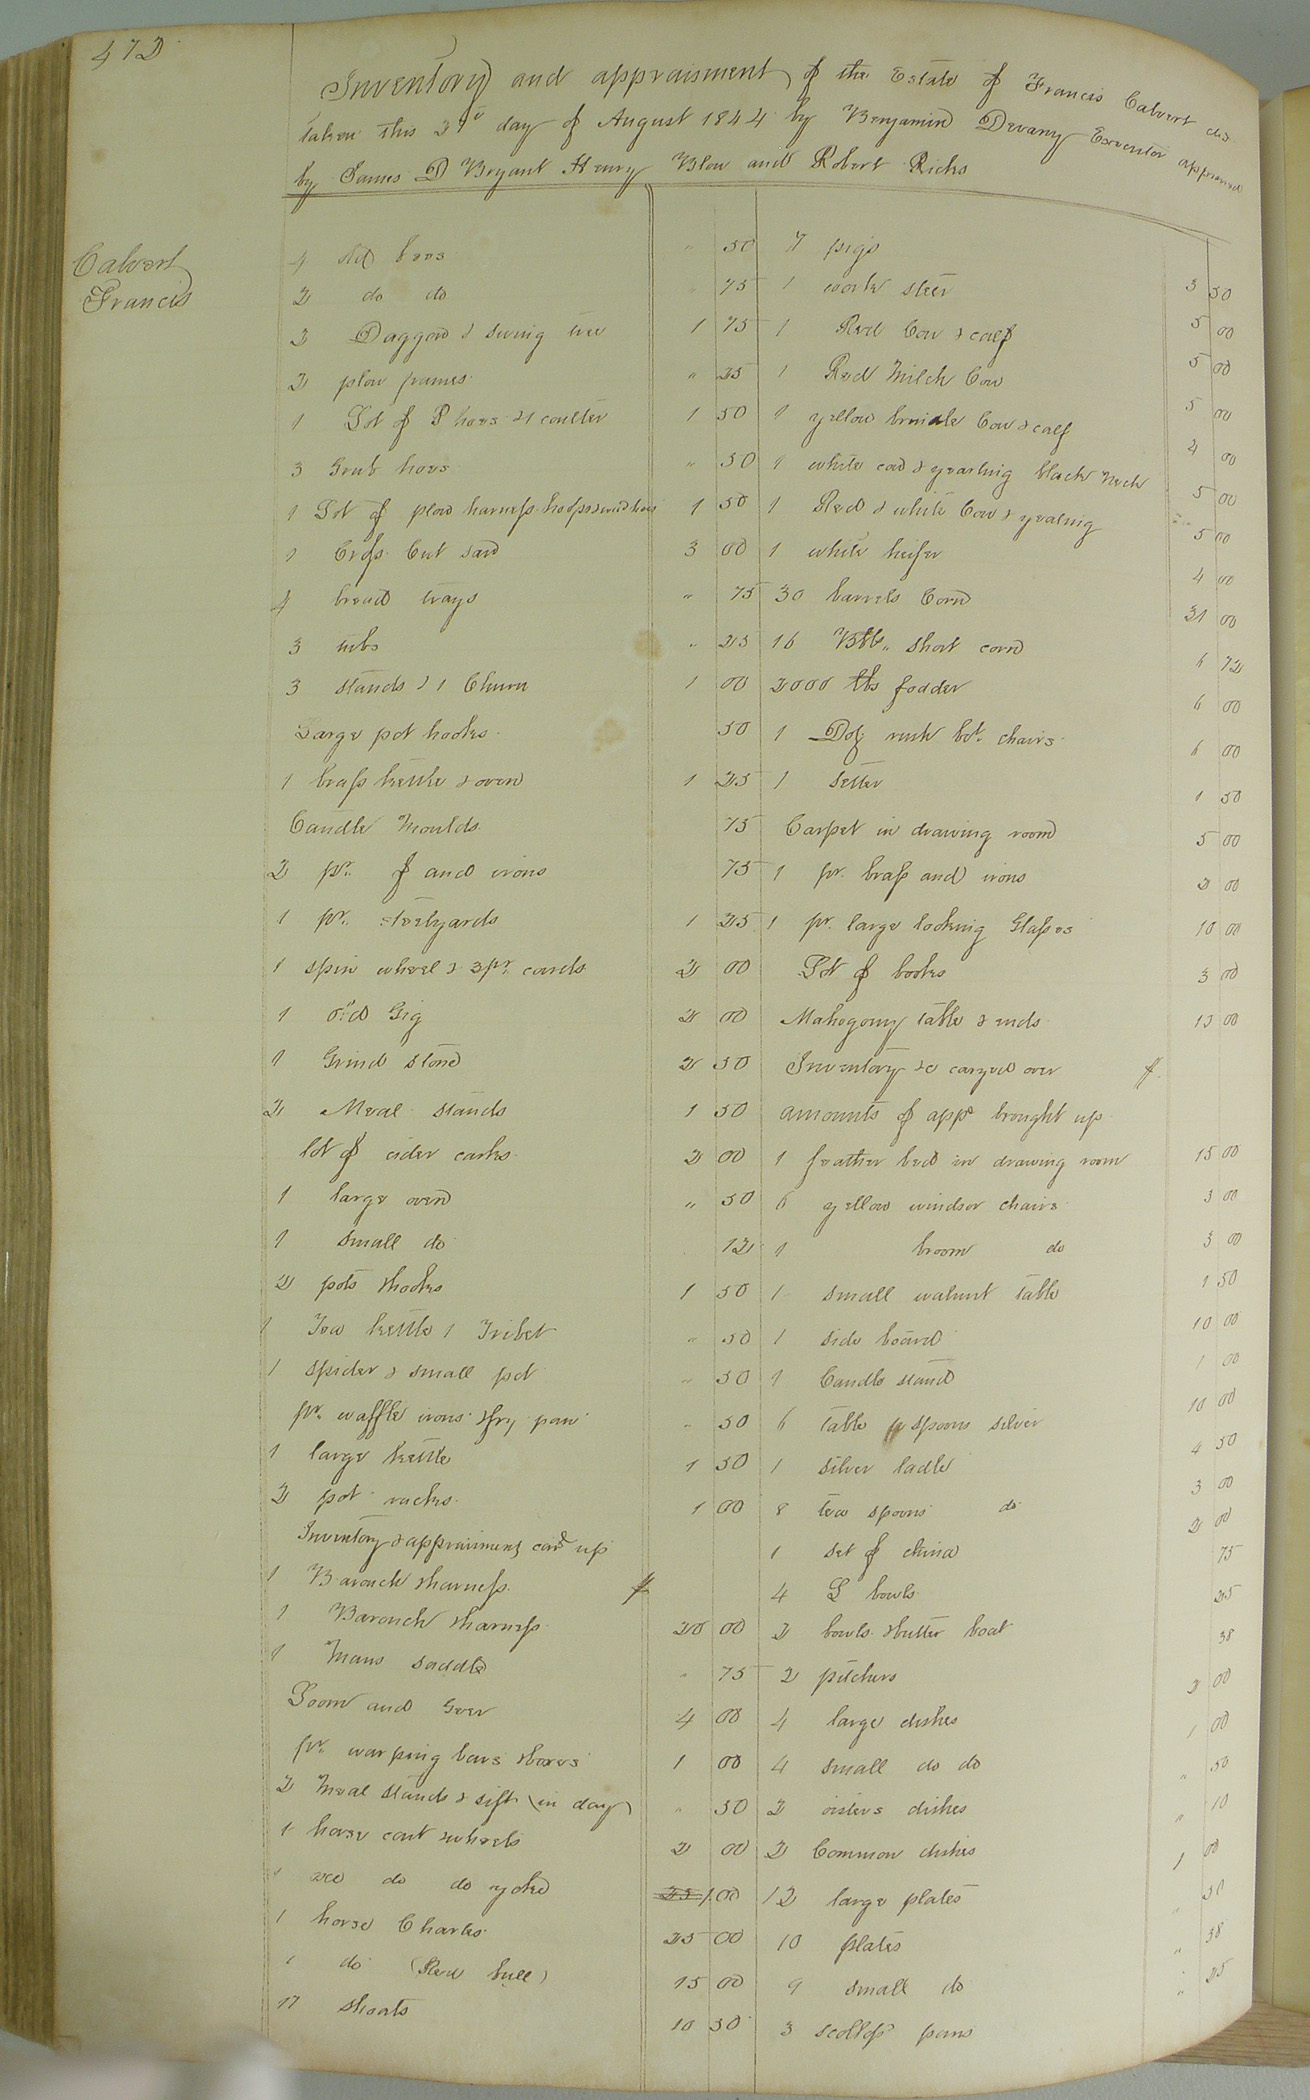 472
Inventory and appraisment of the Estate of Francis Calvert
taken this day of August 1844 by Benjamin Devany Executor appraised
by James D Bryant Henry Blow and Robert Ricks
Calvert
Francis
4 old hoes " 50
2 do do " 75
2 Daggon & swing tree 1 75
2 plow frames " 25
1 Lot of P hoes & 1 coulter 1 50
3 Grub hoes " 50
1 Lot of plow harness 1 50
1 Cross Cut saw 3 00
4 bread trays " 75
3 tubs " 25
3 stands & 1 Churn 1 00
Large pot hooks 50
1 brass kettle & oven 1 25
Candle Moulds 75
2 pr. of and irons 75
1 pr. steelyards 1 25
1 spin wheel & 3 pr. cards 2 00
1 old Gig 2 00
1 Grind stone 2 50
2 Meal stands 1 50
lot of cider casks 2 00
1 large oven " 50
1 small do 12
2 pots & hooks 1 50
1 Tea kettle 1 Tribet " 50
1 spider & small pot " 50
pr. waffle irons & fry pan " 50
1 large kettle 1 50
2 pot racks 1 00
Inventory & appraisment card up
1 Barouch & harness
1 Barouch & harness 20 00
1 Mans saddle " 75
Loom and Geer 4 00
pr. warping bars & boxes 1 00
2 Meal stands & sift (in day) " 50
1 horse cart & wheels 2 00
1 do do yoke 1.00
1 horse Charles 25 00
1 do (Red bull) 15 00
17 shoats 10 50
7 pigs 3 50
1 work steer 5 00
1 Red Cow & calf 5 00
1 Red Milch Cow 5 00
1 yellow brindle Cow & calf 4 00
1 white cow & yearling black neck 5 00
1 Red & white Cow & yearling 5 00
1 white heifer 4 00
30 barrels Corn 31 00
16 Bbls. short corn 6 72
2000 lbs fodder 6 00
1 Doz rush bot. chairs 6 00
1 Setter 1 50
Carpet in drawing room 5 00
1 pr. brass and irons 2 00
1 pr. large looking Glasses 10 00
Lot of books 3 00
Mahogony table & ends 15 00
Inventory &c carryed over
amounts of appt brought up
1 feather bed in drawing room 15 00
6 yellow windsor chairs 3 00
1 broom do 3 00
1 small walnut table 1 50
1 side board 10 00
1 Candle stand 1 00
6 table spoons silver 10 00
1 silver ladle 4 50
8 tea spoons do 3 00
1 set of china 2 00
4 L bowls 75
2 bowls & butter boat 25
2 pitchers 38
4 large dishes 2 00
4 small do do 1 00
2 oisters dishes " 50
2 Common dishes " 10
12 large plates 1 00
10 plates " 50
9 small do " 38
3 scollop pans " 25